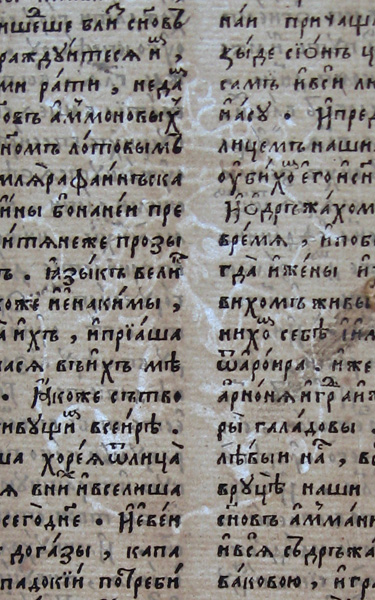 ишеше вли сновъ
раждуитеся и҆щ
ми ра́ти , неда
овъ а҆ммоновы́х
номъ лотовымъ
мля рафаинъска
и҆ны бонане́и пре
и҆тяне же прозы
ъ . і҆азы́къ вели
коже и҆ не накимы ,
и҆хъ , и҆прїа́ша
ася въ и҆хъ мѣ
. И҆коже сътво
живущи всеирѣ .
ша хоре́я ѿ лица̀
я вни и҆вселиша
сегодне . И҆ е҆ве́и
догазы , капа
падокі́и потреби
на́и прича
ѯыде сїѡ́нъ ц
самъ и҆вси лю
и҆ а́су . И҆пред
лицемъ наши
ᲂу҆бихо его и҆ сн
И҆ѡ҆дръжа́хом
вре́мя , и҆ поб
гда̀ и҆ же́ны и҆
вихомъ живы
нихо себѣ
ѿ а҆роира . и҆же
а҆рно́ня и҆ гра и҆
ры̀ гала́довы .
лѣ́выи на ,
вру́цѣ наши
сновъ а҆мма́ни
и҆вся̀ съдръжа
ваковою , и҆ гра